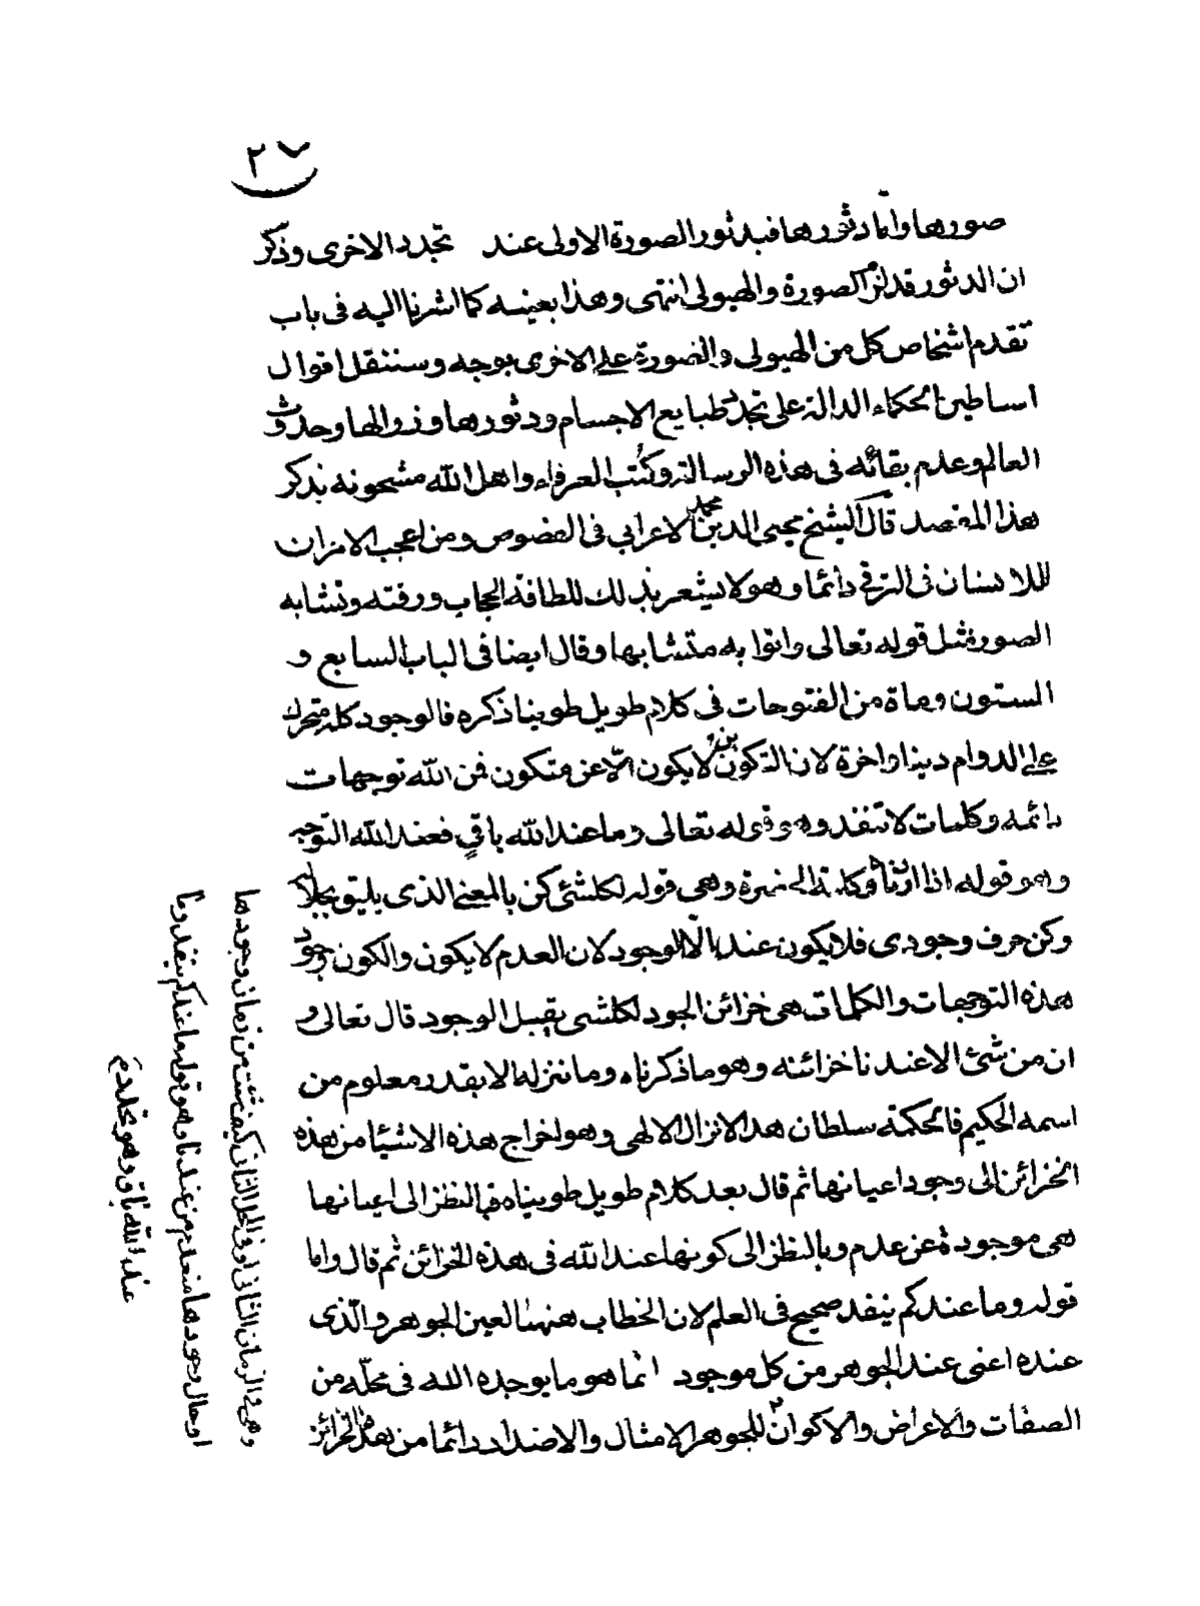 ٢٧
صورها واما دثورها فبدثور الصورة الاولى عند تجدد الاخرى وذكر
ان الدثور قد لزم الصورة والهيولى انتهى وهذا بعينه كما اشرنا اليه فى باب
تقدم اشخاص كل من الهيولى والصورة على الاخرى بوجه وسننقل اقوال
اساطين الحكماء الدالة على تجدد طبايع الاجسام ودثورها وزوالها وحدوث
العالم وعدم بقائه فى هذه الرسالة وكتب العرفاء واهل الله مشحونه بذكر
هذا المقصد قال الشيخ محيى الدين محمد الاعرابى فى الفصوص ومن اعجب الامران
للانسان فى الترقى دائما وهو لا يشعر بذلك للطافة الحجاب ورقته وتشابه
الصورة مثل قوله تعالى واتوا به متشابها وقال ايضا فى الباب السابع و
الستون وماة من الفتوحات فى كلام طويل طوينا ذكره فالوجود كله متحرك
على الدوام دينا واخرة لان التكوين لا يكون الا عن متكون فمن الله توجهات
دائمه وكلمات لا تنفد وهو قوله تعالى وما عند الله باقٍ فعند الله التوجه
وهو قوله اذا اردناه وكلمة الحضرة وهى قوله لكلشئ كن بالمعنى الذى يليق بجلاله
وكن حرف وجودى فلا يكون عنه الا الوجود لان العدم لا يكون والكون وجود
هذه التوجهات والكلمات هى خزائن الجود لكلشى يقبل الوجود قال تعالى و
ان من شئ الا عندنا خزائنه وهو ما ذكرناه وما ننزله الا بقدر معلوم من
اسمه الحكيم فالحكمة سلطان هذا الانزال الالهى وهو اخراج هذه الاشيا من هذه
الخزائن الى وجود اعيانها ثم قال بعد كلام طويل طويناه فبالنظر الى اعيانها
هى موجودة عن عدم وبالنظر الى كونها عند الله فى هذه الخزائن ثم قال واما
قوله وما عندكم ينفد صحيح فى العلم لان الخطاب ههنا لعين الجوهر والذى
عنده اعنى عند الجوهر من كل موجود انما هو ما يوجده الله فى محله من
الصفات والاعراض والاكوان للجوهر الامثال والاضداد دائما من هذه الخزائن
وهى فى الزمان الثانى او فى الحال الثانى كيف شئت من زمان وجودها
او حال وجودها منعدم من عندنا وهو قوله ما عندكم ينفد وما
عند الله باق وهو تجدد